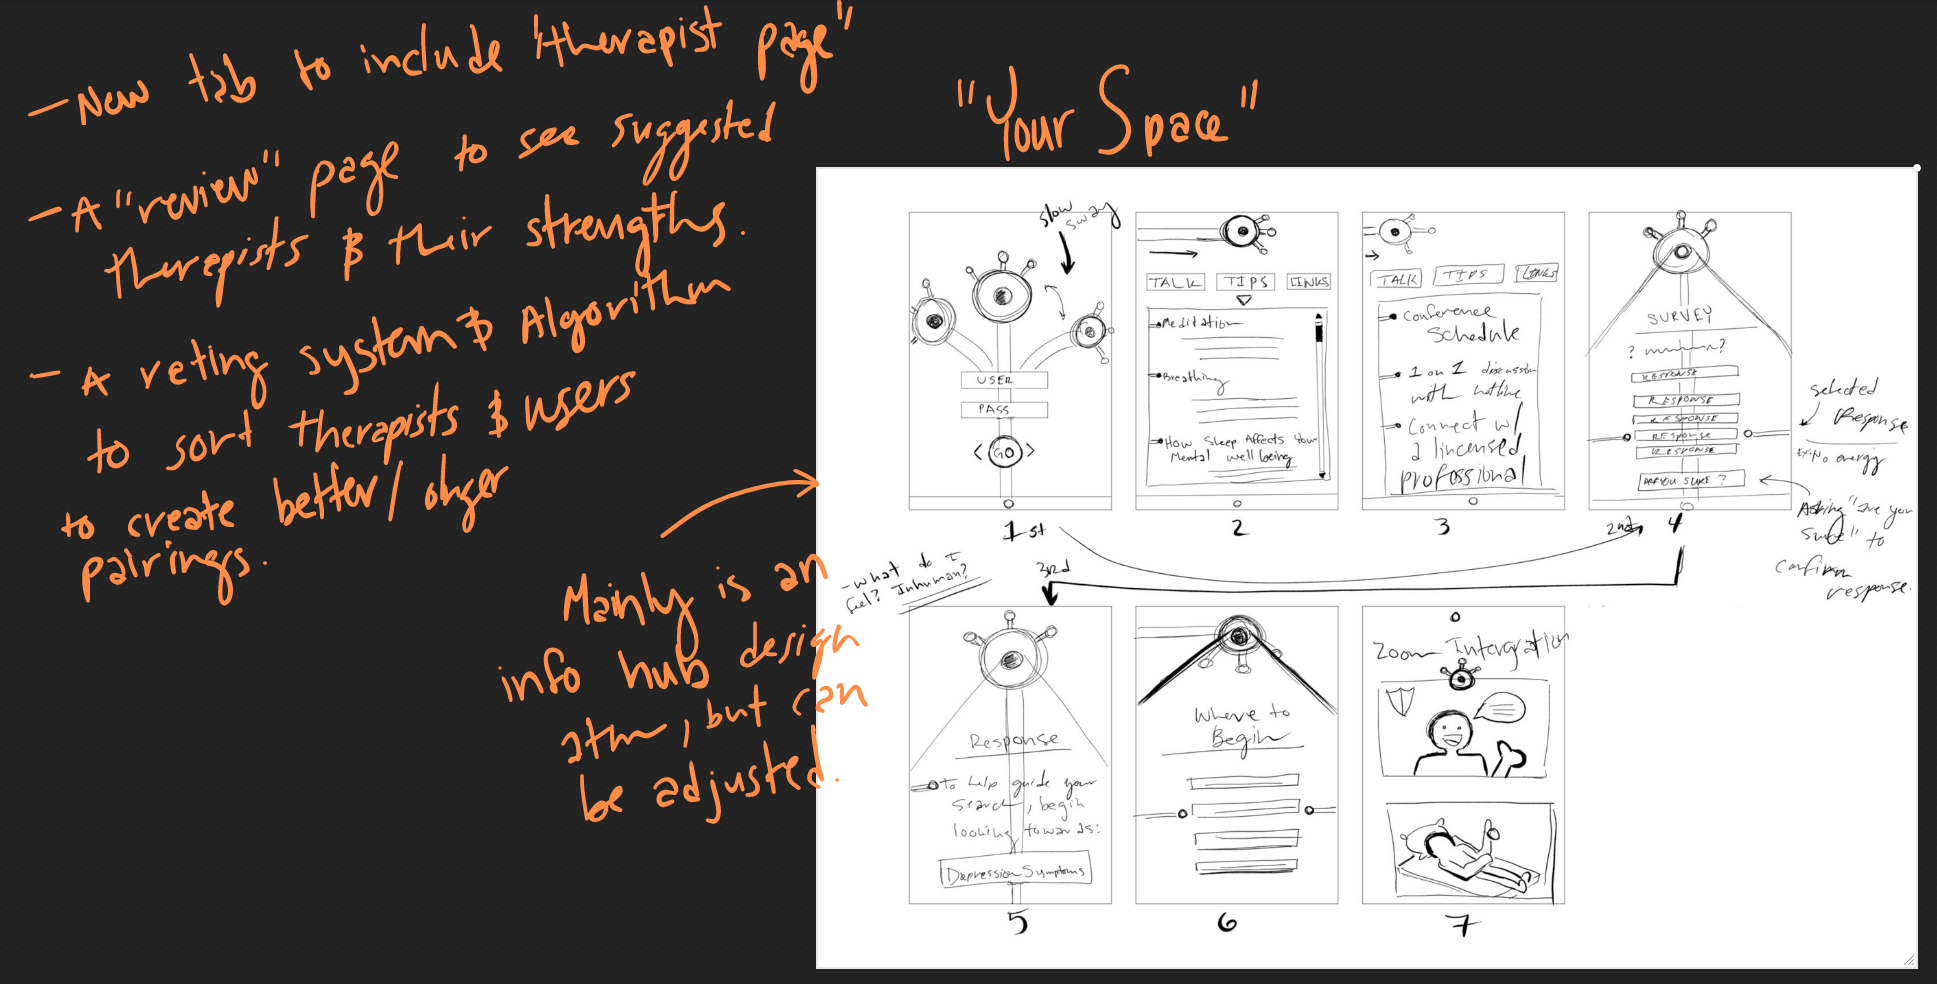 - New tab to include "therapist page"
- A "review" page to see suggested
therapists & their strengths.
- A rating system & Algorithm
to sort therapists & users
to create better/longer
pairings.
Mainly is an
info hub design
atm, but can
be adjusted.
"Your Space"
slow
sway
USER
PASS
GO
1st
TALK
TIPS
LINKS
Meditation
Breathing
How Sleep Affects Your
Mental well being
2
TALK
TIPS
LINKS
Conference
Schedule
1 on 1 discussion
with hotline
Connect w/
a lincensed
professional
3
SURVEY
?
?
RESPONSE
RESPONSE
RESPONSE
RESPONSE
RESPONSE
ARE YOU SURE?
2nd
4
selected
Response
Ex: No energy
Asking "are you
sure" to
confirm
response.
- what do I
feel? Inhuman?
3rd
Response
To help guide your
search, begin
looking towards:
Depression Symptoms
5
Where to
Begin
6
Zoom Intergration
7